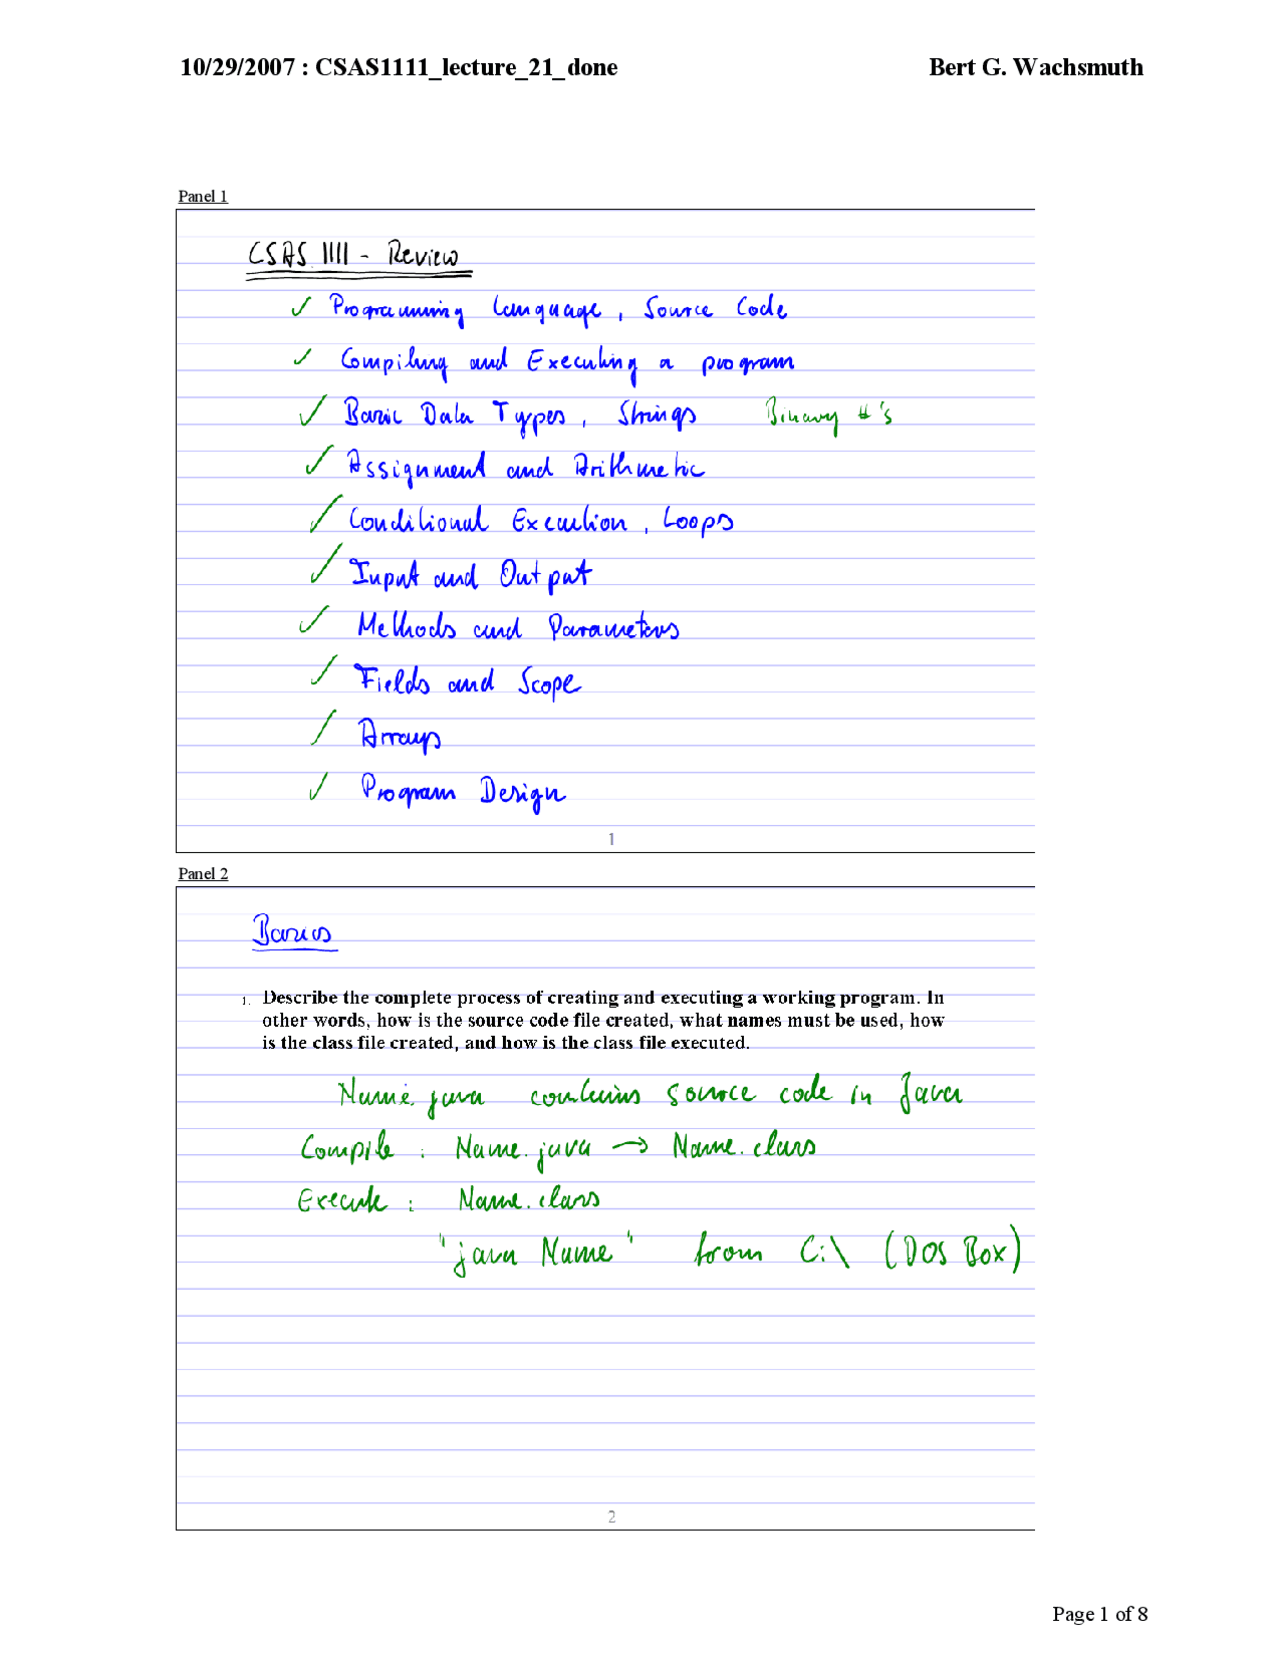 10/29/2007 : CSAS1111_lecture_21_done Bert G. Wachsmuth
Panel 1
CSAS 1111 - Review
✓ Programming Language, Source Code
✓ Compiling and Executing a program
✓ Basic Data Types, Strings Binary #'s
✓ Assignment and Arithmetic
✓ Conditional Execution, Loops
✓ Input and Output
✓ Methods and Parameters
✓ Fields and Scope
✓ Arrays
✓ Program Design
1
Panel 2
Basics
1. Describe the complete process of creating and executing a working program. In
other words, how is the source code file created, what names must be used, how
is the class file created, and how is the class file executed.
Name.java contains source code in Java
Compile : Name.java → Name.class
Execute : Name.class
"java Name" from C:\ (DOS Box)
2
Page 1 of 8